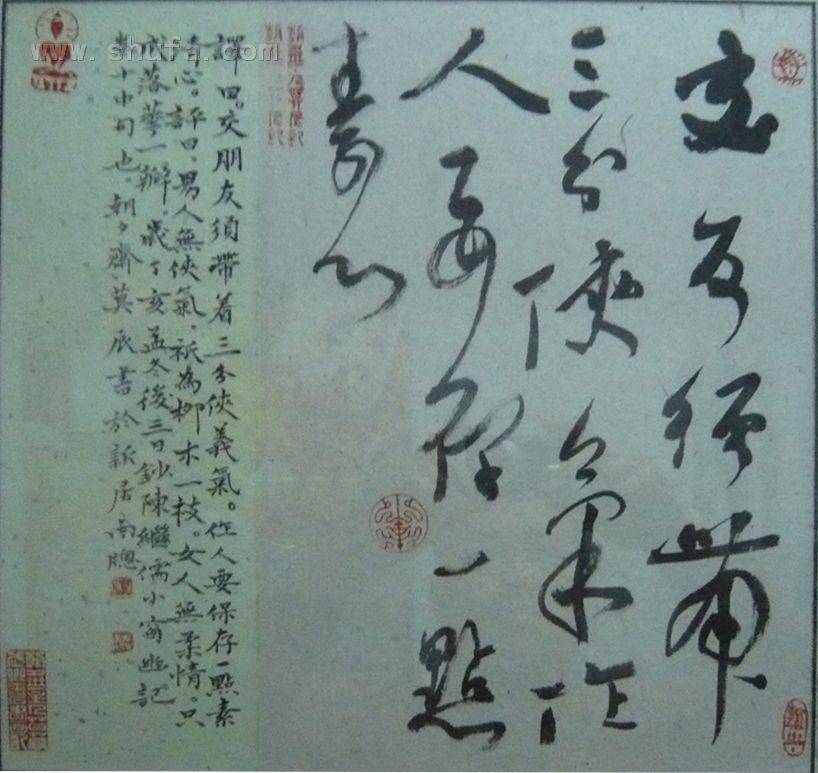 交友須帶
三分俠氣作
人要存一點
素心
譯曰。交朋友須帶着三分俠義氣。作人要保存一點素
心。評曰。男人無俠氣，祇為柳木一枝。女人無柔情。只
成落華一瓣。歲丁亥孟冬後三日鈔陳繼儒小窗幽記
十中句也。朝夕齋莫辰書於新居南牕
www.shufa.com